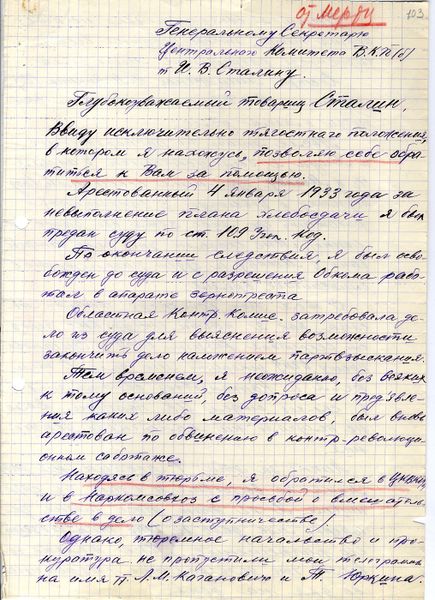 от Мерзу
103.
Генеральному Секретарю
Центрального Комитета В.К.П(б)
т И. В. Сталину.
Глубокоуважаемый товарищ Сталин,
Ввиду исключительно тягостного положения,
в котором я нахожусь, позволяю себе обра-
титься к Вам за помощью.
Арестованный 4 января 1933 года за
невыполнение плана хлебосдачи я был
предан суду по ст. 109 Уг. Код.
По окончании следствия, я был осво-
божден до суда и с разрешения Обкома рабо-
тал в апарате зернотреста
Областная Контр. Комис. затребовала де-
ло из суда для выяснения возможности
закончить дело наложением партвзыскания.
Тем временем, я неожиданно, без всяких
к тому оснований, без допроса и предъявле-
ния каких либо материалов, был вновь
арестован по обвинению в контр-революци-
онном саботаже.
Находясь в тюрьме, я обратился в
и в Наркомсовхоз с просьбой о вмешатель-
стве в дело (о заступничестве)
Однако, тюремное начальство и про-
куратура не пропустили мои телеграммы
на имя т. Л.М. Кагановича и т. Юркина.